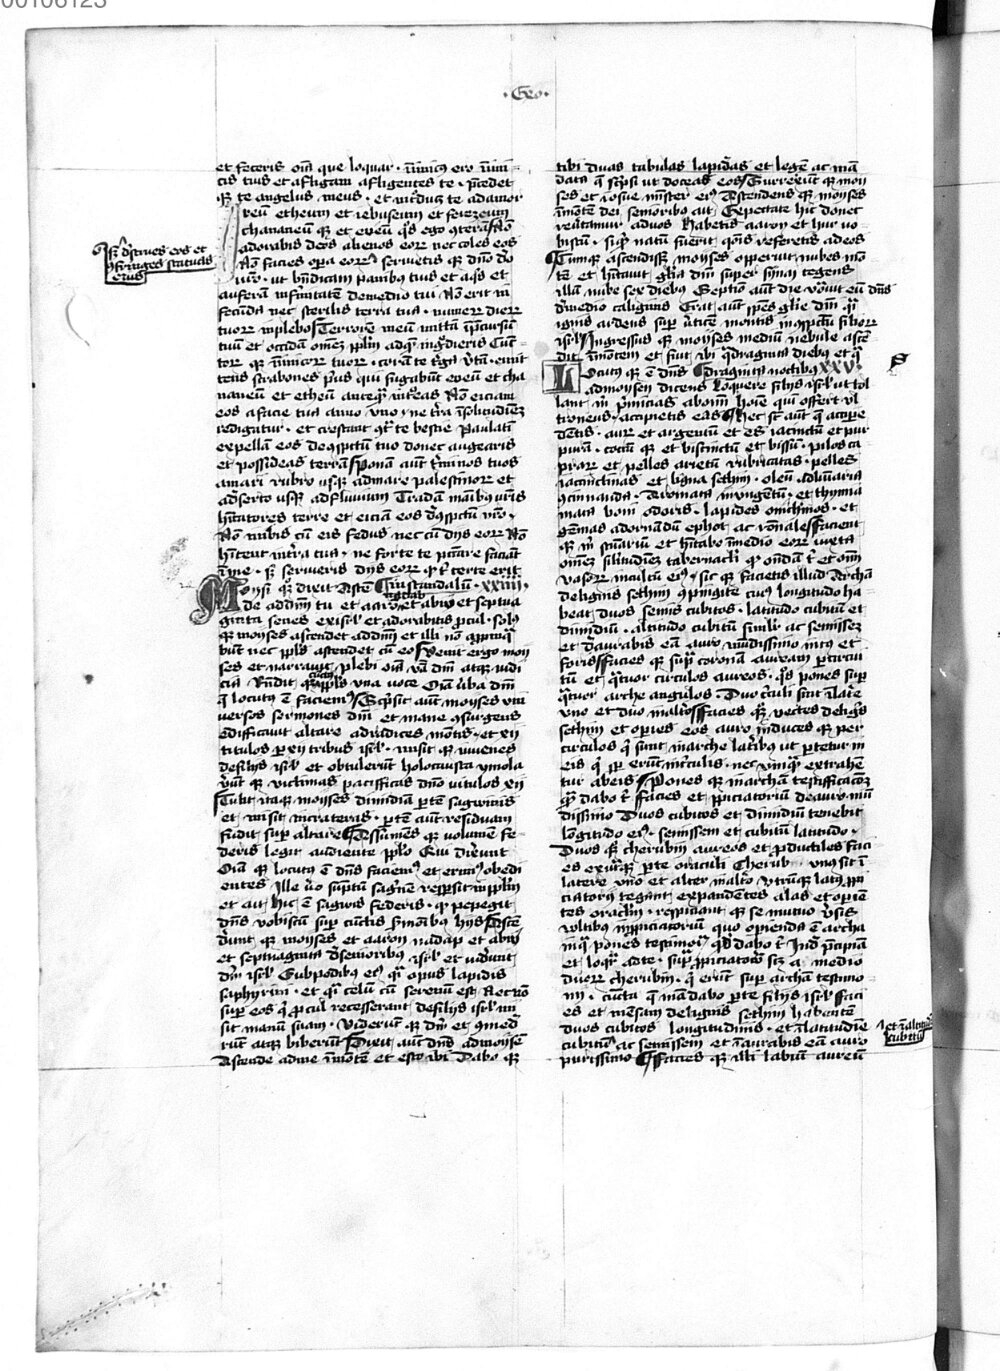 00106123
· Exo ·
et feceris oīa que loquar · inimicus ero inimi
cis tuis et affligam affligentes te · p̄cedet
q̨ te angelus meus · et introducet te ad amor
reū etheum et iebuseum et ferezeum
chananeū q̨ et eveū q̄s ego ꝯterā Nō
adorabis deos alienos eorū nec coles eos
Nō facies opera eorū
sꝫ destrues eos et
ꝯfringes statuas
eorum
servietis q̨ dn̄o deo
vr̄o · ut bn̄dicam panibus tuis et aq̄s et
auferā infirmitatē de medio tui Nō erit in
fecūda nec sterilis terra tua · numerū dierū
tuorū inplebo Terrorē meū mittā in p̄cursū
tuū et occidā omēz pplm̄ ad quē ingredieris Cūc
torū q̨ inimicorū tuorū · corā te terga vertā · emit
tens scrabones prius qui fugabunt eveū et cha
naneū et etheū anteq̄ introeas Nō eiciam
eos a facie tua anno uno · ne terra in solitudinēz
redigatur · et crescant ꝯtra te bestie Paulatī
expellā eos de ꝯspectu tuo donec augearis
et possideas terrā Ponā aūt terminos tuos
a mari rubro usq̨ ad mare palestinorū et
a deserto usq̨ ad fluvium Tradā manibus vr̄is
habitatores terre et eiciā eos de ꝯspectu vr̄o ·
Nō inibis cū eis fedus nec cū diis eorū Nō
habitent in terra tua · ne forte te peccare faciāt
in me · si servieris diis eorū q̄ tibi certe erit
in scandalū · xxiiii ·
Moysi q̨ dixit Ascē
de ad dn̄m tu et aaron
nadab
et abiu et septua
ginta senes ex isrl̄ et adorabitis procul · solus
q̨ moyses ascendet ad dn̄m et illi nō appropinq̄
būt nec ppls ascendet cū eo Venit ergo moy
ses et narravit plebi oīa v̄ba dn̄i atq̨ iudi
cia Rn̄dit q̨
cūctus
ppls una voce Oīa v̄ba dn̄i
q̄ locutus ē faciemus Scripsit aūt moyses uni
versos sermones dn̄i et mane ꝯsurgens
edificavit altare ad radices mōtis · et xii
titulos per xii tribus isrl̄ · misit q̨ iuvenes
de filiis isrl̄ et obtulerūt holocausta ymola
verūt q̨ victimas pacificas dn̄o vitulos xii
Tulit itaq̨ moyses dimidiā partē sagwinis
et misit in crateras · partē aūt residuam
fudit super altare Assumēs q̨ volumē fe
deris legit audiente pplo Qui dixerunt
Oīa q̨ locutus ē dn̄s faciemus et erimus obedi
entes Ille v̄o sumptū sagwinē respersit in pplm̄
et ait hic ē sagwis federis · q̄ pepegit
dn̄s vobiscū super cunctis sermonibus hiis Ascen
derunt q̨ moyses et aaron nadap et abiu
et septuaginta de senioribus isrl̄ et viderunt
deū isrl̄ Sub pedibus eius q̄si opus lapidis
saphyrini · et q̄si celū cū serenū est Nec nō
super eos q̄ procul recesserant de filiis isrl̄ mi
sit manū suam · Viderūt q̨ deū et comede
rūt atq̨ biberūt Dixit aūt dn̄s ad moysē
Ascende ad me in mōtē et esto ibi Dabo q̨
tibi duas tabulas lapideas et legē ac mā
data q̄ scripsi ut doceas eos Surrexerūt q̨ moy
ses et iosue minister eius Ascendens q̨ moyses
in mōtē dei senioribus ait Expectate hic donec
revertamur ad vos Habetis aaron et hur vo
biscū · si quid natū fuerit q̄onis referetis ad eos
Cumq̨ ascendisset moyses operuit nubes mō
tē et habitavit gl̄ia dn̄i super synai tegens
illū nube sex diebus Septimo aūt die vocavit eū dn̄s
de medio caliginis Erat aūt spēs gl̄ie dn̄i q̄si
ignis ardens super verticē montis in ꝯspectu filiorū
isrl̄ Ingressus q̨ moyses mediū nebule ascē
dit in mōtem et fuit ibi q̄draginta diebus et q̄
draginta noctibus XXV ·
Locutus q̨ ē dn̄s
ad moysen dicens Loquere filiis isrl̄ ut tol
lant m̄ primicias ab omni hoīe qui offert ul
troneus · accipietis eas Hec sūt aūt q̄ accipe
detis · aurū et argentū et es iacinctū et pur
purā · coctū q̨ et bistinctū et bissum · pilos ca
prarū et pelles arietū rubricatas · pelles
iacinctinas et ligna sethim · oleū ad luminaria
ꝯcinnanda · Aromata in ungentū · et thymia
mata boni odoris · lapides onichinos · et
gēmas ad ornandū ephot ac rōnale Facient
q̨ m̄ sanctuariū et habitabo in medio eorū iuxta
omēz similitudinēz tabernaculi q̄ ondā tibi et omīu
vasorū in cultū eius · sic q̨ facietis illud Archā
de lignis sethim ꝯpingite cuius longitudo ha
beat duos semis cubitos · latitudo cubitū et
dimidiū · altitudo cubitū similiter ac semissez
et deaurabis eā auro mūdissimo intus et
foris Facies q̨ supra coronā auream per circui
tū et q̄tuor circulos aureos · q̄s pones super
q̄tuor arche angulos · Duo circuli sint in latere
uno et duo in altero Facies q̨ vectes de lignis
sethim et operies eos auro induces q̨ per
circulos q̄ sunt in arche lateribus ut portetur in
eis q̄ semper erūt in circulis · nec unq̄ extrahē
tur ab eis Pones q̨ in archā testificacōeꝫ
quā dabo tibi Facies et propiciatoriū de auro mū
dissimo Duos cubitos et dimidiū tenebit
longitudo eius · semissem et cubitū latitudo ·
Duos q̨ cherubin aureos et productiles faci
es ex utraq̨ parte oraculi Cherub · unus sit ī
latere uno et alter in altero Utrumq̨ latus ppi
ciatorii tegant expandētes alas et operien
tes oraculū · respiciant q̨ se mutuo versis
vultibus in propiciatoriū quo operienda ē archa
in qua pones testimoniū quod dabo tibi Inde precipiam
et loquar ad te · super propiciatoriū scꝫ a medio
duorū cherubin · q̄ erūt super archā testimo
nii · cūcta q̄ mādabo per te filiis isrl̄ Faci
es et mensam de lignis sethim habentē
duos cubitos longitudinis · et in latitudine
cubitum
et in altitudine
cubitū
ac semissem et inaurabis eā auro
purissimo Facies q̨ illi labiū aureū